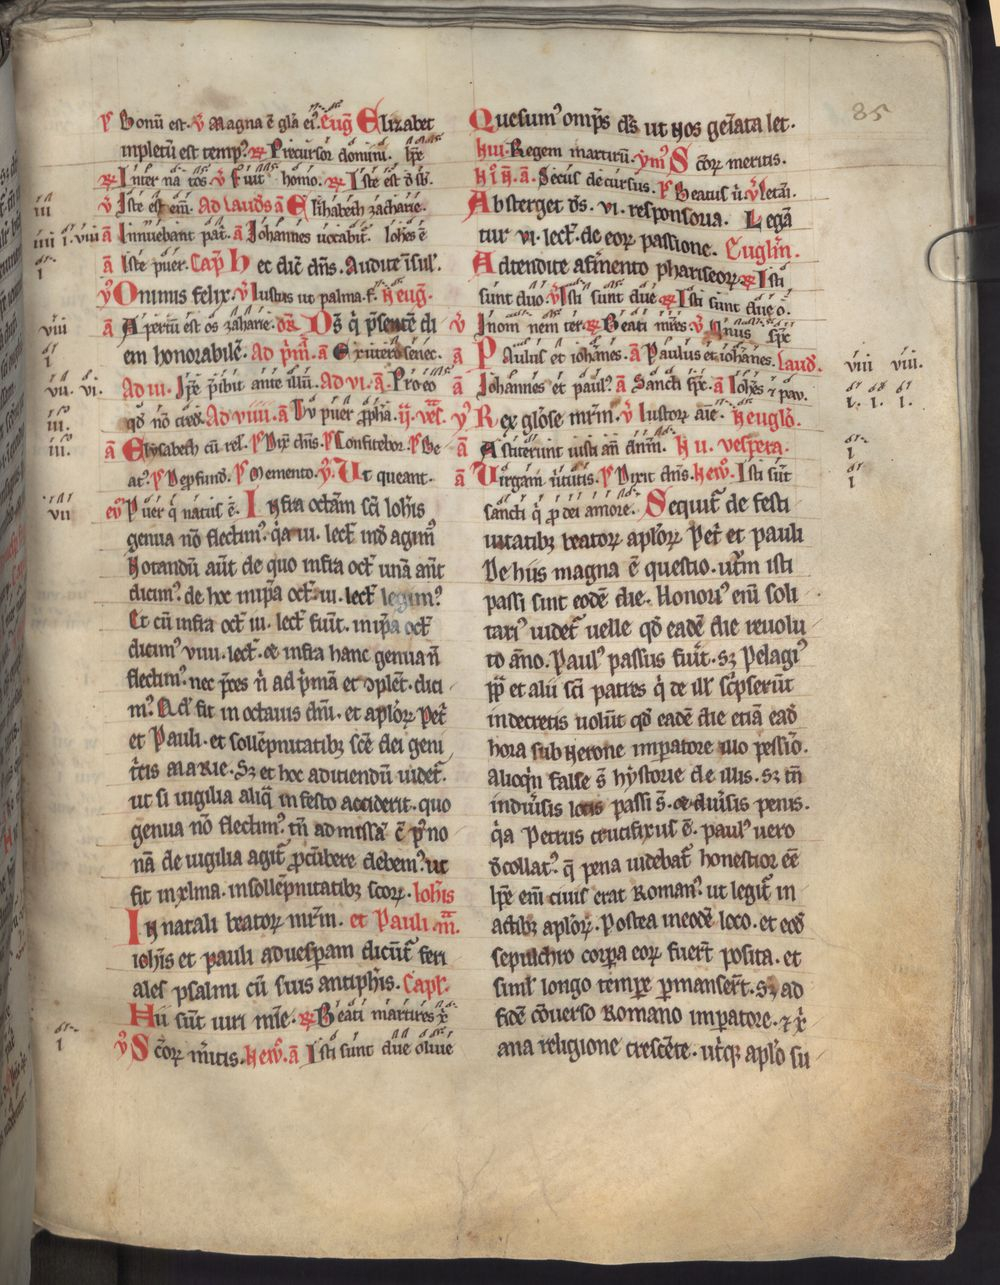 85
p̄ Bonū est. v̄ Magna ē gl̄a ei⁹. euḡ Elizabet
inpletū est temp⁹. ꝶ Precursor domini. ip̄e
ꝶ Inter na tos. v̄ Fuit homo. ꝶ Iste est
v̄ Iste est eni. Ad laudes ā Elisabeth zacharie.
ā Innuebant pat. ā Iohannes uocabit. Ioh̄es ē
ā Iste puer. Cap̄ Hec dic̄ dn̄s. Audite isul.
v̄ Oninus felix. v̄ Iustus ut palma. f. H euḡ.
ā Apertū est os zaharie. or̄ Ds̄ q̄ p̄sentē di
em honorabilē. Ad p̄m̄. ā Exiuterō senec.
Ad iii. Ip̄e p̄ibit ante illū. Ad vi. ā. Pro eo
qd̄ nō cred. Ad viiii. ā Tu puer ꝓpha. ii. ves̄.
ā Elysabeth cū rel. p̄ Dix̄ dn̄s. p̄ Confitebor. p̄ Be
at⁹. p̄ Deꝓfund. p̄ Memento. v̄. Ut queant.
ev̄ Puer q̄ natus ē. Infra octām sc̄i ioh̄is
genua nō flectim⁹. q̄a iii. lect̄ inō agim⁹
Notandū aut̄ de quo infra oct̄ unā ant̄
dicim⁹. de hoc in ip̄a oct̄. iii. lect̄ legim⁹
Et cū infra oct̄ iii. lect̄ fiunt. in ip̄a oct̄
dicim⁹ viiii. lect̄. et infra hanc genua n̄
flectim⁹. nec p̄ces n̄ ad p̄mā et ↄplet̄. dici
m⁹. Qd̄ fit in octauis dn̄i. et apl̄oꝝ Pet̄
et Pauli. et sollēpnitatibꝫ sc̄e dei geni
t̄cis marie. Sꝫ et hoc adiciendū uidet̄.
ut si uigilia aliq̄ in festo acciderit. quo
genua nō flectim⁹. tn̄ ad missā ē p̄ no
nā de uigilia agit̄ ꝓcūbere debem⁹. ut
fit in xlma. in sollēpnitatibꝫ sc̄oꝝ. Ioh̄is
In natali beatoꝝ mr̄m. et Pauli. m̄.
ioh̄is et pauli ad uesperam dicūt̄ feri
ales psalmi cū suis antiph̄is. Cap̄l.
Hii sūt uiri mīe. ꝶ Beati martires x̄
v̄ Sc̄oꝝ m̄itis. hew̄. ā Isti sunt due oliue
Quesum⁹ omp̄s ds̄ ut nos gem̄ata let.
Hui. Regem martirū. ym̄⁹ Sc̄oꝝ meritis.
ā. Secus decursus. p̄ Beatus ū. v̄ letā.
Absterget ds̄. vi. responsoria. Legā
tur vi. lect̄. de eoꝝ passione. Euglm̄.
Adtendite a fermento phariseoꝝ. ꝶ Isti
sunt duo. v̄ Isti sunt due. ꝶ Isti sunt due o.
v̄ In om nem ter. ꝶ Beati mr̄es. v̄ Unus sp̄c
ā Paulus et iohanes. ā Paulus et iohanes. Laud.
ā Iohannes et paul⁹. ā Sancti sp̄c. ā Ioh̄es ⁊ pau.
v̄ Rex glōse mr̄m. v̄ Iustoꝝ aīe. H euglō.
ā Astiterunt iusti an̄ dn̄m. H ii. vespera.
ā Uirgam uirtutis. p̄ Dixit dn̄s. hew̄. Isti sūt
sancti q̄ ꝓ dei amore. Sequit̄ de festi
uitatibꝫ beatoꝝ apl̄oꝝ Pet̄ et pauli
De hiis magna ē questio. ut̄m isti
passi sint eodē die. Honori⁹ eni soli
tari⁹ uidet̄ uelle qd̄ eadē die reuolu
to anno. Paul⁹ passus fuit̄. sꝫ Pelagi⁹
p̄p̄ et alii sc̄i patres q̄ de ill̄ sc̄pserūt
in decretis uolūt qd̄ eadē die etiā eadē
hora sub Nerone imperatore illo pessīo.
Alioq̄n false s̄ hystorie de illis. sꝫ tn̄
in diūsis locis passi s̄. et diūsis penis.
q̄a Petrus crucifixus ē. paul⁹ uero
decollat⁹. q̄ pena uidebat̄ honestior eē
ip̄e em̄ ciuis erat Roman⁹. ut legit̄ in
actibꝫ apl̄oꝝ. Postea in eodē loco. et eodē
sepulchro corp̄a eoꝝ fuer̄t posita. et
simł longo temp̄e p̄manser̄t. sꝫ ad
fidē cōuerso Romano imp̄atore. ⁊ xp̄i
ana religione crescēte. ut̄qꝫ apl̄o su
iii
iiii i. viii
i
viii
i
vii. vi.
iii.
iii.
vii
i
viii viii.
i. i. i.
i
i